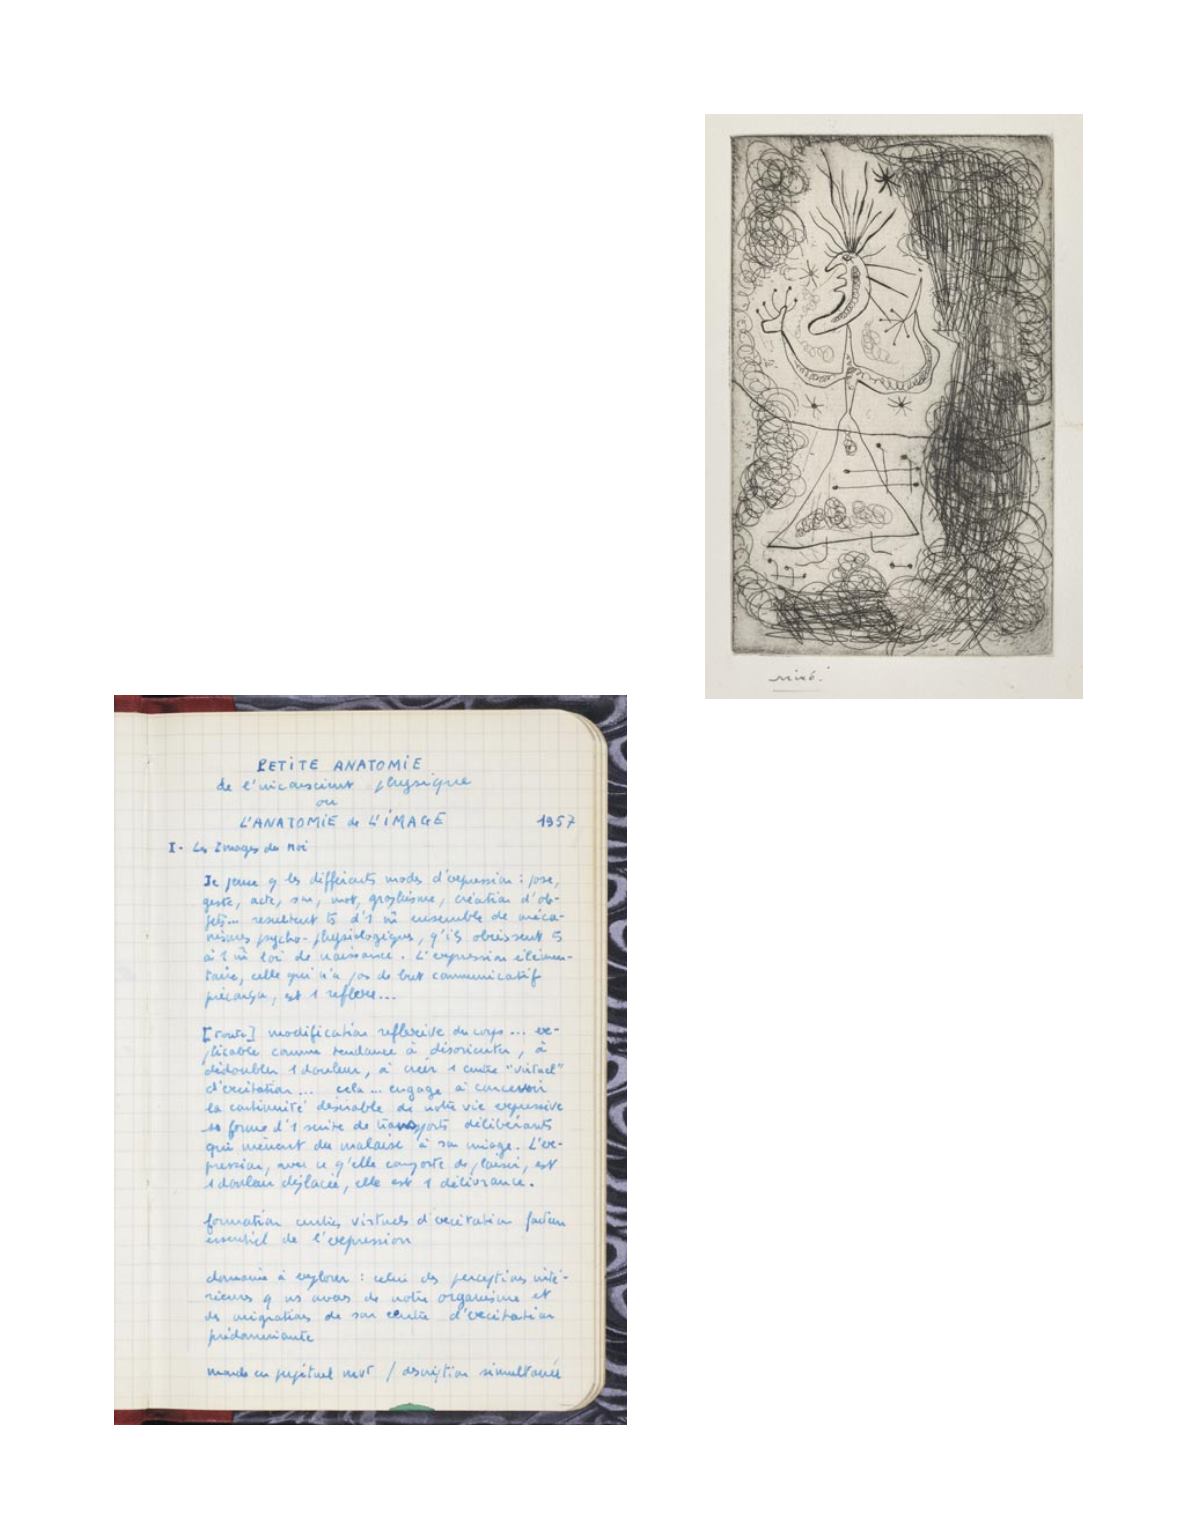 miró.
PETITE ANATOMIE
de l'inconscient physique
ou
L'ANATOMIE de L'IMAGE 1957
I. Les Images du moi
Je pense q les différents modes d'expression : pose,
geste, acte, son, mot, graphisme, création d'ob-
jets... résultent ts d'1 m̂ ensemble de méca-
nismes psycho-physiologiques, q'ils obéissent ts
à 1 m̂ loi de naissance. L'expression élémen-
taire, celle qui n'a pas de but communicatif
préconçu, est 1 réflexe...
[toute] modification réflexive du corps... ex-
plicable comme tendance à désorienter, à
dédoubler 1 douleur, à créer 1 centre "virtuel"
d'excitation... cela... engage à concevoir
la continuité désirable de notre vie expressive
ss forme d'1 suite de transports délibérants
qui mènent du malaise à son image. L'ex-
pression, avec ce q'elle comporte de plaisir, est
1 douleur déplacée, elle est 1 délivrance.
formation centres virtuels d'excitation facteur
essentiel de l'expression
domaine à explorer : celui des perceptions inté-
rieures q ns avons de notre organisme et
des migrations de son centre d'excitation
prédominante
monde en perpétuel mvt / description simultanée